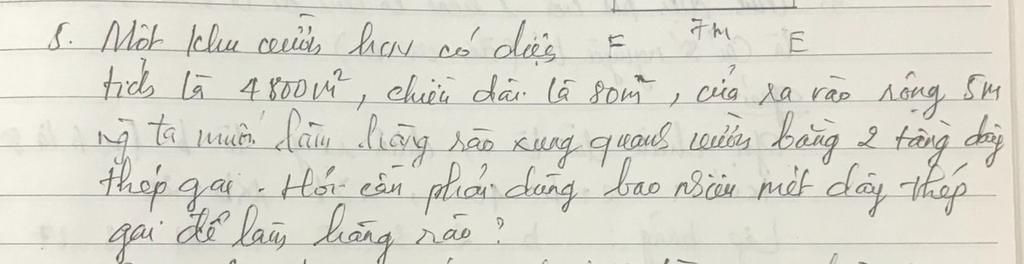 7m
F E
8. Một khu vườn hcv có diện
tích là 4800m², chiều dài là 80m², cửa ra vào rộng 5m
ng ta muốn làm hàng rào xung quanh vườn bằng 2 tầng dây
thép gai. Hỏi cần phải dùng bao nhiêu mét dây thép
gai để làm hàng rào?